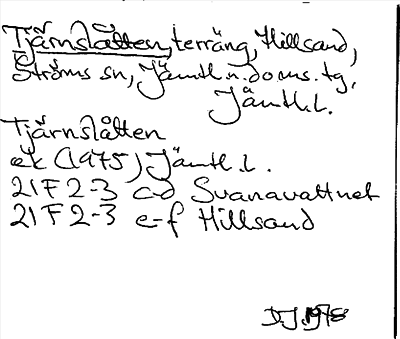 Tjärnslåtten, terräng, Hillsand,
Ströms sn, Jämtl. n. doms. tg,
Jämtl. l.
Tjärnslåtten
ek (1975) Jämtl. l.
21F 2-3 c-d Svanavattnet
21F 2-3 e-f Hillsand
DJ. 1978